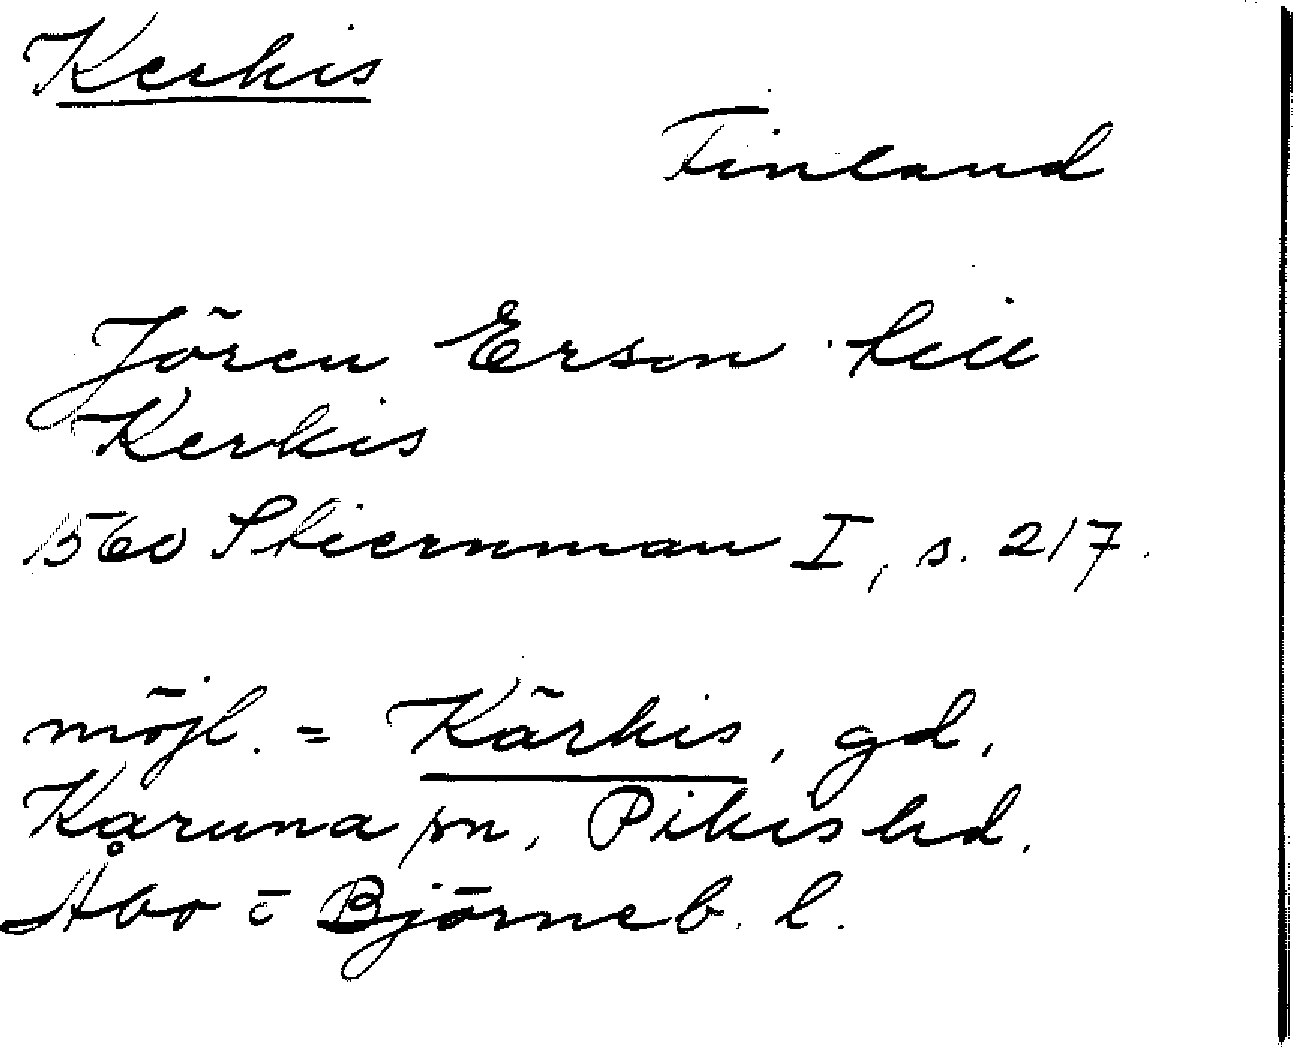 Kerkis
Finland
Jören Erson till
Kerkis
1560 Stiernman I, s. 217.
möjl. = Kärkis, gd,
Karuna sn, Pikis hd.
Åbo o Björneb. l.